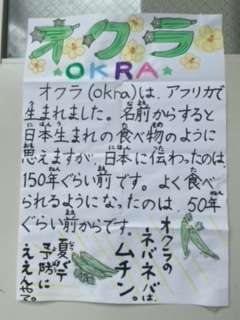 オクラ
★OKRA★
オクラ(okra)は、アフリカで
生まれました。名前からすると
日本生まれの食べ物のように
思えますが、日本に伝わったのは
150年ぐらい前です。よく食べ
られるようになったのは、50年
ぐらい前からです。
オクラの
ネバネバは、
ムチン。
夏バテ
予防に
ええんやで。